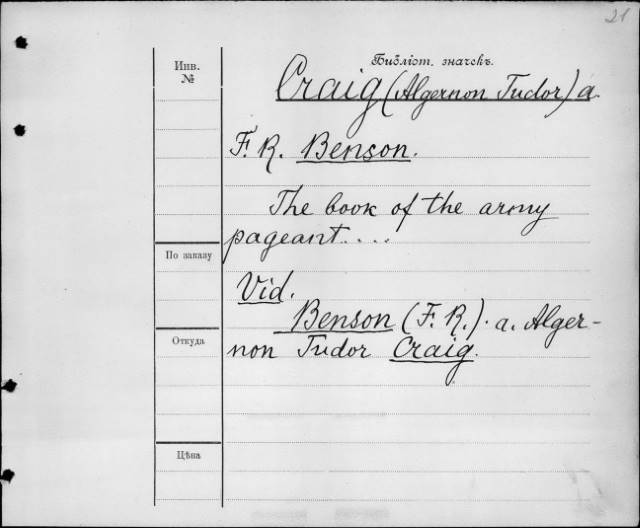 21
Инв.
№
Библіот. значекъ.
Craig (Algernon Tudor) a.
F. R. Benson.
The book of the army
pageant....
По заказу
Vid.
Benson (F. R.). a. Alger-
Откуда
non Tudor Craig.
Цѣна